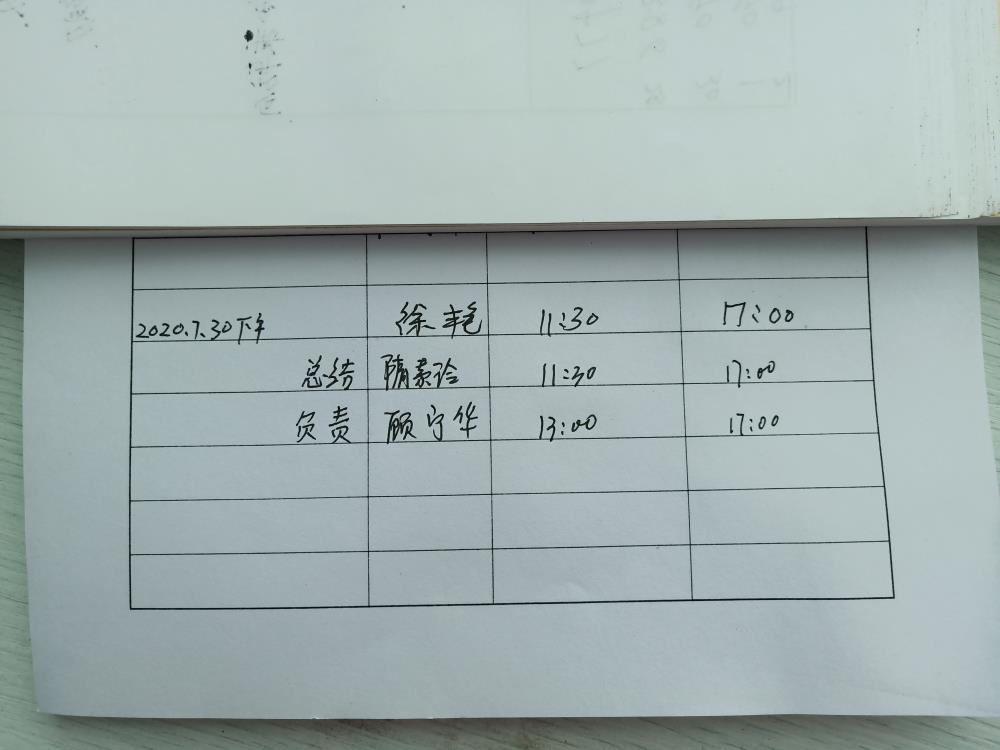 2020.7.30下午 徐艳 11:30 17:00
总结 隋素玲 11:30 17:00
负责 顾守华 13:00 17:00